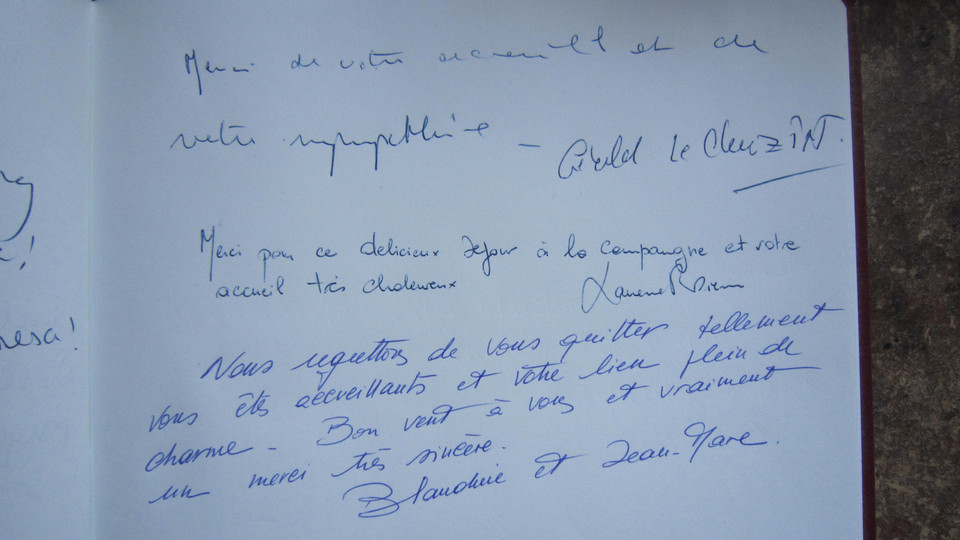 Merci de votre accueill et de
votre sympathie –
Merci pour ce delicieux sejour à la compangne et votre
accueil très chaleureux
Nous regrettons de vous quitter tellement
vous êtes accueillants et votre lieu plein de
charme - Bon vent à vous et vraiment
un merci très sincère.
Blandine et Jean-Marc.
resa!